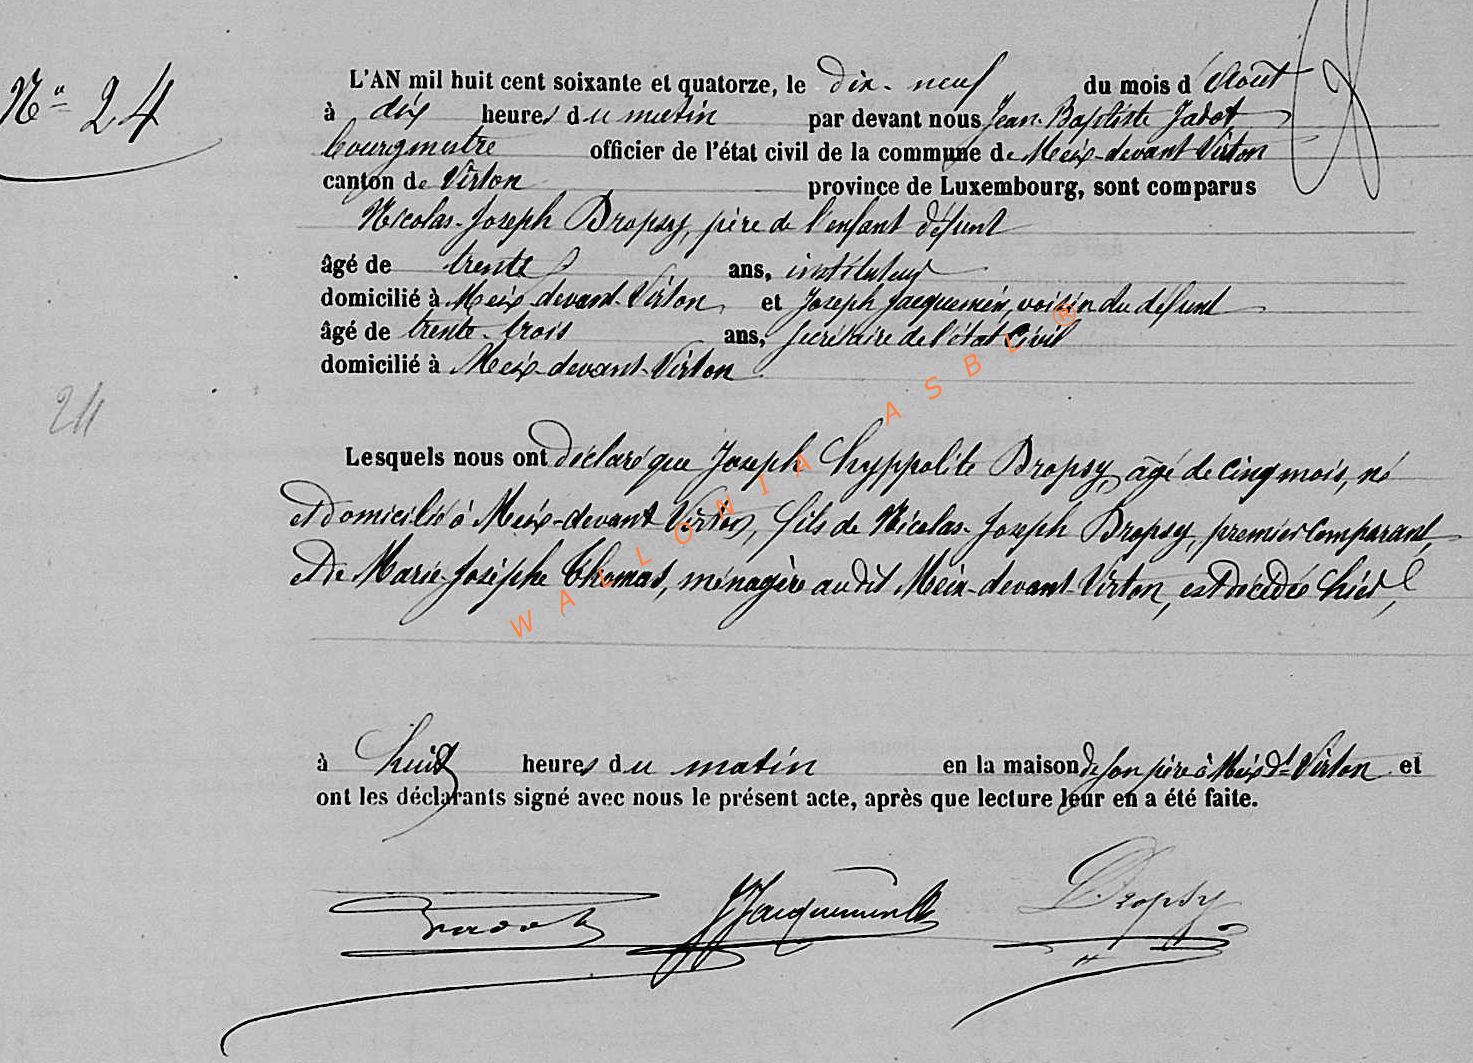 Nº 24
L'AN mil huit cent soixante et quatorze, le dix-neuf du mois d'Août
à dix heures du matin par devant nous Jean-Baptiste Jadot
bourgmestre officier de l'état civil de la commune de Meix-devant-Virton
canton de Virton province de Luxembourg, sont comparus
Nicolas-Joseph Dropsy, père de l'enfant défunt
âgé de trente ans, instituteur
domicilié à Meix-devant-Virton et Joseph Jacquemin, voisin du défunt
âgé de trente-trois ans, secrétaire de l'état Civil
domicilié à Meix-devant-Virton
24
Lesquels nous ont déclaré que Joseph hyppolite Dropsy, âgé de cinq mois, né
et domicilié à Meix-devant Virton, fils de Nicolas-Joseph Dropsy, premier comparant,
et de Marie-Josèphe Thomas, ménagère audit Meix-devant-Virton, est décédé hier,
à huit heures du matin en la maison de son père à Meix-Dt-Virton et
ont les déclarants signé avec nous le présent acte, après que lecture leur en a été faite.
Jadot JJacquemin Dropsy
WALLONIA ASBL ®